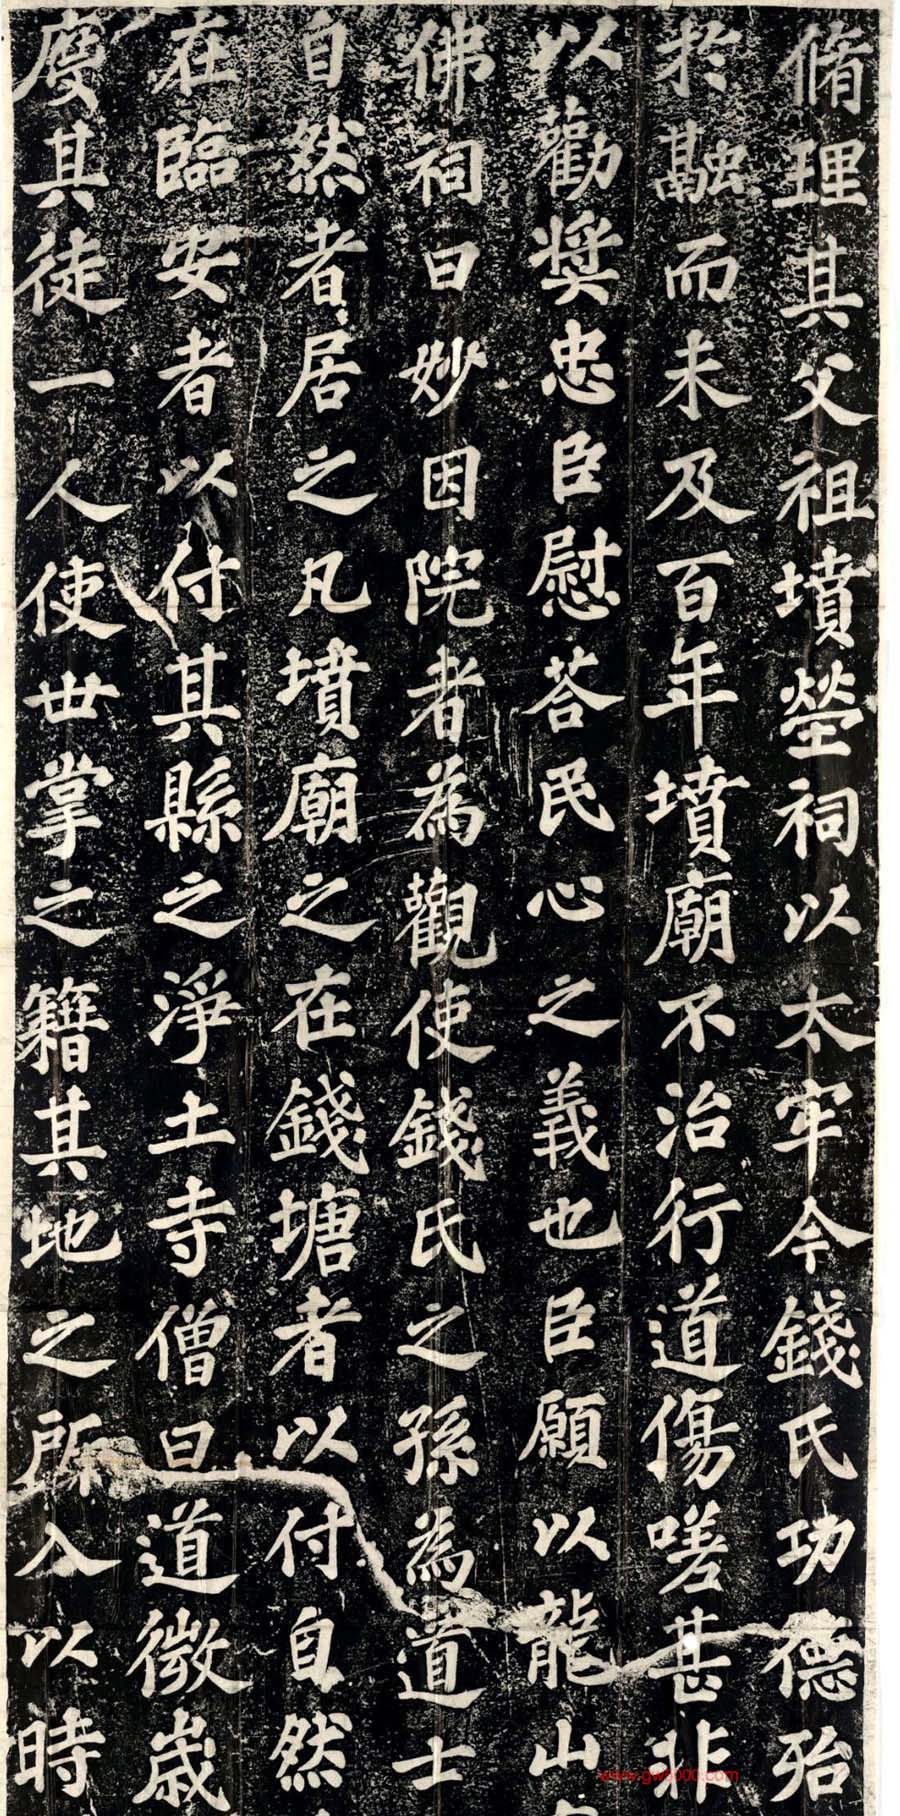 脩理其父祖墳塋祠以太牢今錢氏功德殆
於融而未及百年墳廟不治行道傷嗟甚非
以勸奬忠臣慰荅民心之義也臣願以龍山
佛祠曰妙因院者為觀使錢氏之孫為道士
自然者居之凡墳廟之在錢塘者以付自然
在臨安者以付其縣之淨土寺僧曰道微歲
度其徒一人使世掌之籍其地之所入以時
www.gw5000.com